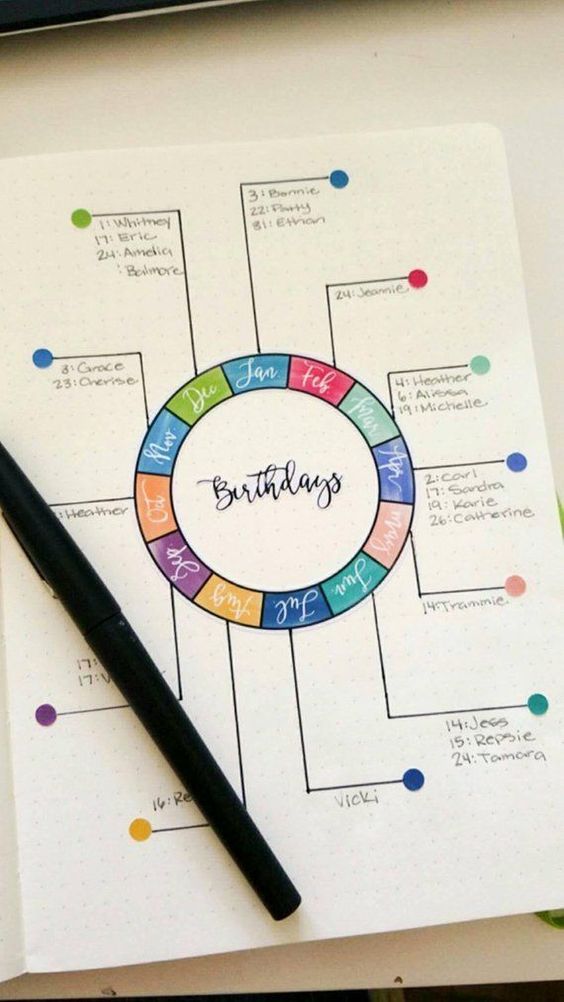 Birthdays
Jan
3: Bonnie
22: Patty
31: Ethan
Feb
24: Jeannie
Mar
4: Heather
6: Alissa
19: Michelle
Apr
2: Carl
17: Sandra
19: Karie
26: Catherine
May
14: Trammie
Jun.
14: Jess
15: Repsie
24: Tamara
Jul
Vicki
Aug
16: Re
Sep.
17:
17: V
Oct
: Heather
Nov.
3: Grace
23: Cherise
Dec.
1: Whitney
17: Eric
24: Amelia
: Balmore